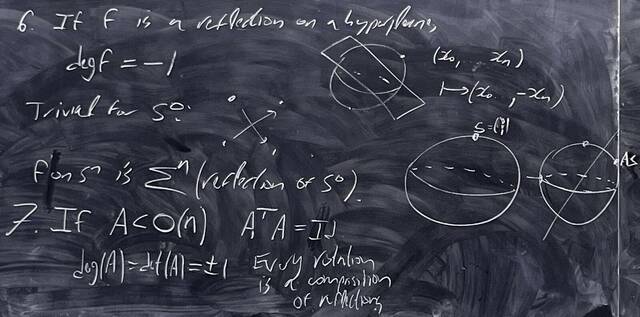 6. If f is a reflection on a hyperplane,
deg f = -1
(x₀, -- xₙ)
↦ (x₀ , -xₙ)
Trivial for S⁰:
f on Sⁿ is Σⁿ (reflection of S⁰)
7. If A < O(n) AᵀA = I
deg(A) = det(A) = ±1
Every rotation
is a composition
of reflections